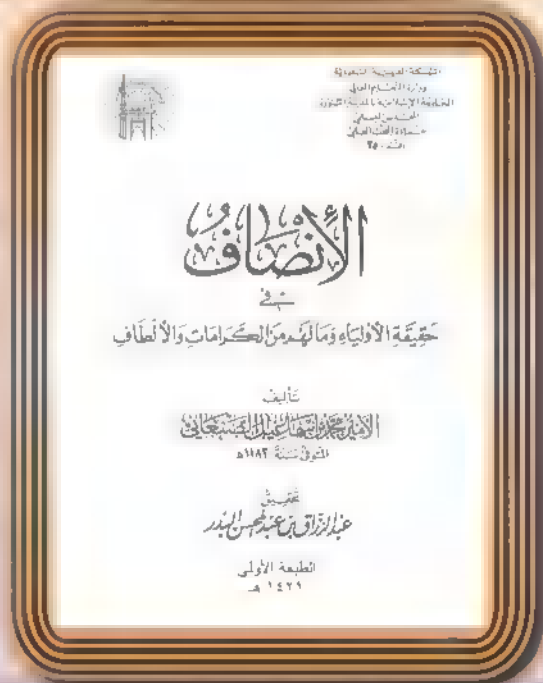 المملكة العربية السعودية
وزارة التعليم العالي
الجامعة الإسلامية بالمدينة المنورة
المجلس العلمي
عمادة البحث العلمي
الأنصاف
في
حقيقة الأولياء ومالهم من الكرامات والألطاف
تأليف
الأمير محمد بن إسماعيل الصنعاني
المتوفى سنة ١١٨٢ه
تحقيق
عبد الرزاق بن عبد المحسن البدر
الطبعة الأولى
١٤٢١ هـ